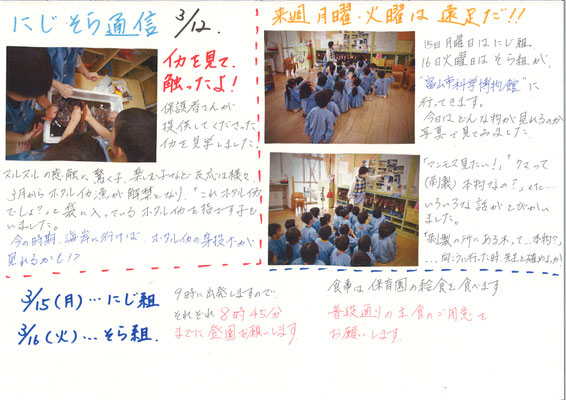 にじ・そら通信 3/12.
イカを見て、
触ったよ！
保護者さんが
提供してくださった
イカを見学しました。
ヌルヌルの感触に驚く子、楽しむ子など反応は様々。
3月からホタルイカ漁が解禁となり、「これホタルイカ
でしょ？」と袋に入っているホタルイカを指さす子も
いました。
今の時期、海岸に行けば ホタルイカの身投げが
見れるかも!?
来週 月曜・火曜は 遠足だ!!
15日月曜日はにじ組、
16日火曜日はそら組が、
"富山市科学博物館"に
行ってきます。
今日はどんな物が見れるのか
写真で見てみました。
「マンモス見たい！」「クマって
(剥製)本物なの？」など…
いろいろな話がとびかい
ました。
「剥製の所にある木って…本物？」
…向こうに行った時、先生と確めよう
3/15(月)…にじ組
3/16(火)…そら組
9時に出発しますので、
それぞれ 8時45分
までに登園お願いします。
食事は保育園の給食を食べます。
普段通りの主食のご用意を
お願いします。